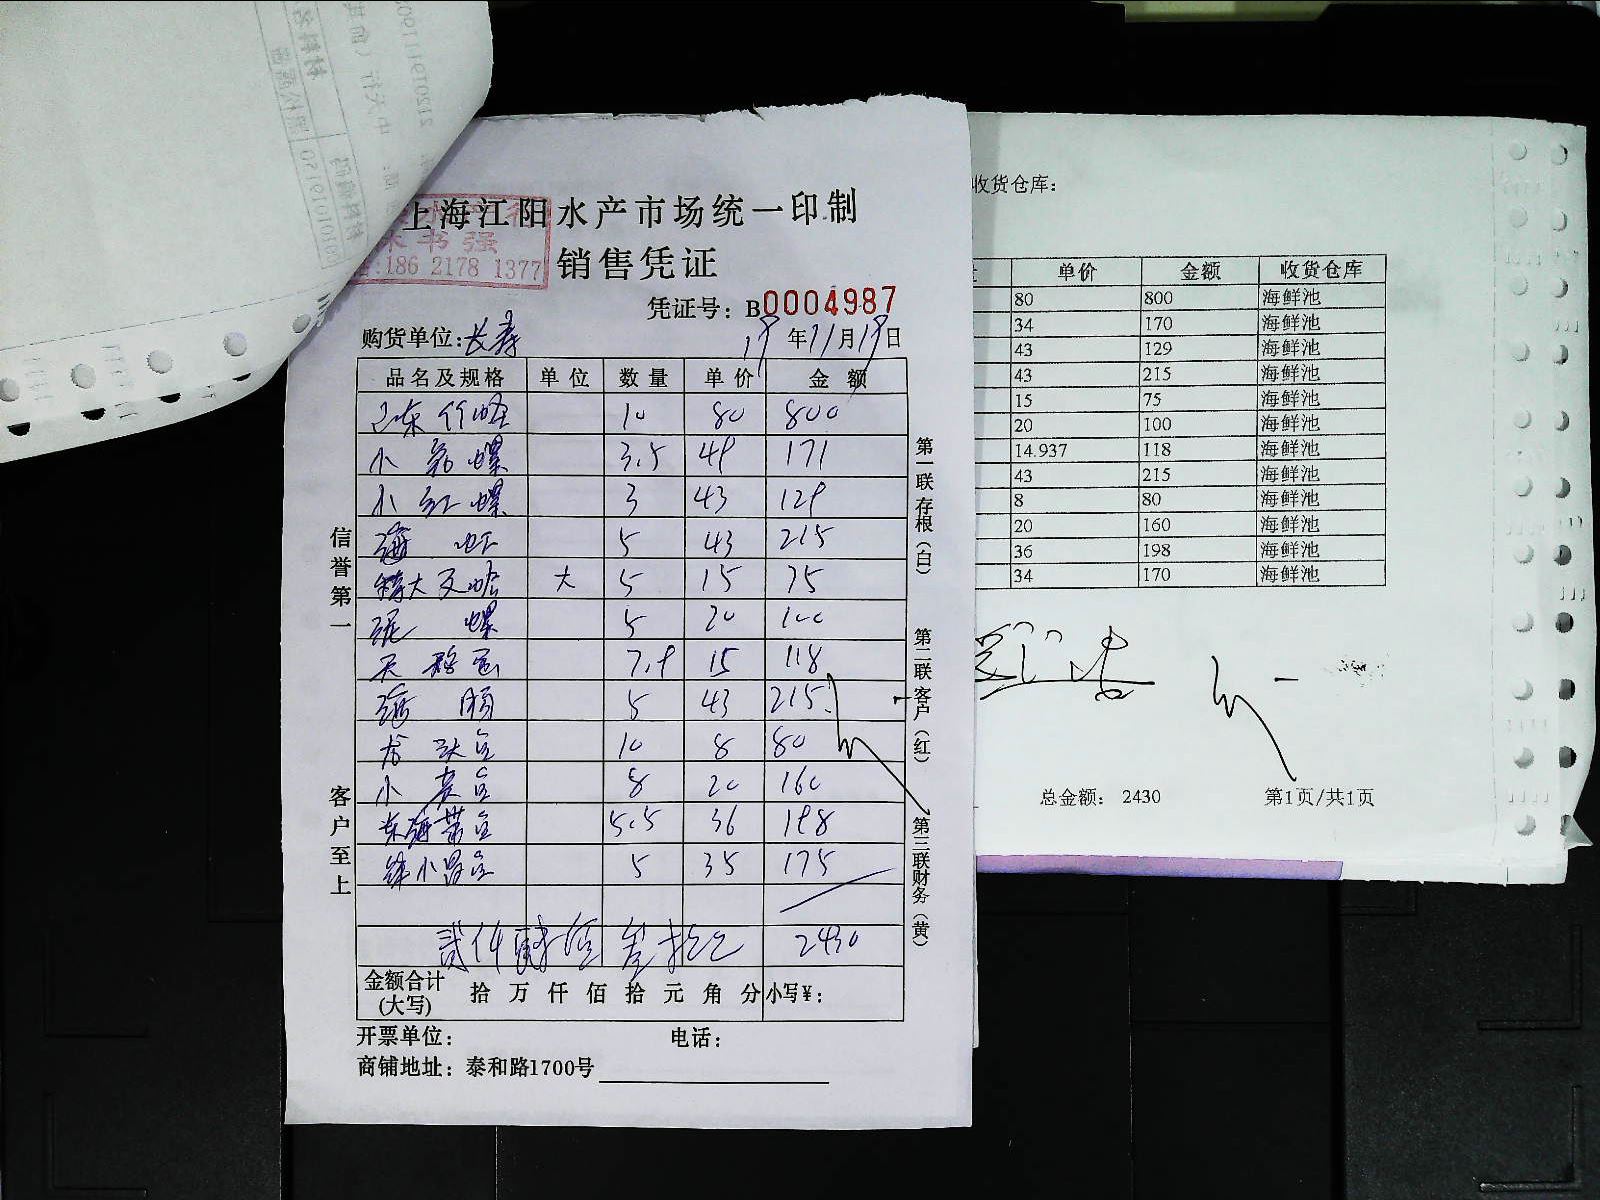 上海江阳水产市场统一印制
书强
186 2178 1377
销售凭证
凭证号：B0004987
购货单位：长寿 19年11月19日
品名及规格 单位 数量 单价 金额
10 80 800
小 螺 3.5 49 171
小红螺 3 43 129
海 虾 5 43 215
特大文蛤 大 5 15 75
泥 螺 5 20 100
7.9 15 118
5 43 215
龙头鱼 10 8 80
小黄鱼 8 20 160
东海带鱼 5.5 36 198
小 鱼 5 35 175
贰仟肆佰叁拾元 2430
金额合计(大写) 拾万仟佰拾元角分 小写¥：
开票单位： 电话：
商铺地址：泰和路1700号
信誉第一
客户至上
第一联存根（白）
第二联客户（红）
第三联财务（黄）
收货仓库：
单价 金额 收货仓库
80 800 海鲜池
34 170 海鲜池
43 129 海鲜池
43 215 海鲜池
15 75 海鲜池
20 100 海鲜池
14.937 118 海鲜池
43 215 海鲜池
8 80 海鲜池
20 160 海鲜池
36 198 海鲜池
34 170 海鲜池
总金额： 2430 第1页/共1页